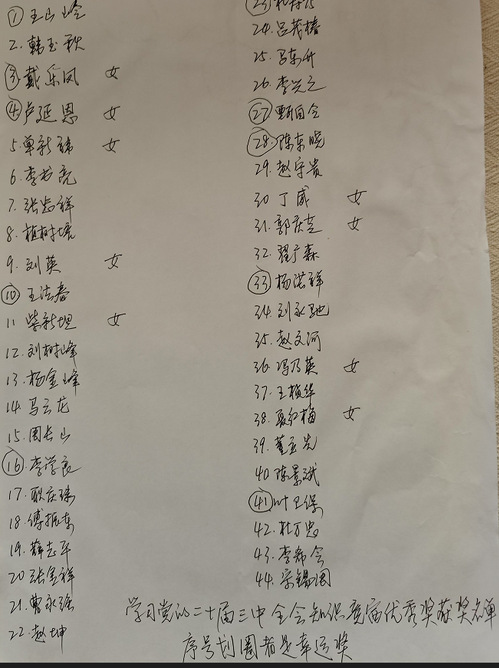 ① 王山岭
2. 韩玉秋
③ 戴乐凤 女
④ 卢延恩 女
5. 单新 女
6. 李书亮
7. 张忠祥
8. 植树
9. 刘英 女
⑩ 王法春
11 柴新坦 女
12. 刘树峰
13. 杨金峰
14 马云龙
15. 周长山
⑯ 李学良
17. 耿庆珠
18 傅振东
19. 薛志平
20 张金祥
21. 曹永强
22. 赵坤
24. 吕茂椿
25. 吕东升
26. 李兴之
㉗ 甄百全
㉘ 陈东晓
29. 赵守贵
30 丁威 女
31. 郭庆芝 女
32. 翟广森
㉝ 杨洪祥
34 刘永驰
35. 赵文河
36 冯乃英 女
37. 王桂华
38. 梅 女
39. 董先
40 陈景斌
㊶ 叶卫保
42. 杜万忠
43. 李希全
44. 宋锡
学习党的二十届三中全会知识竞届优秀奖获奖名单
序号划圈者是幸运奖